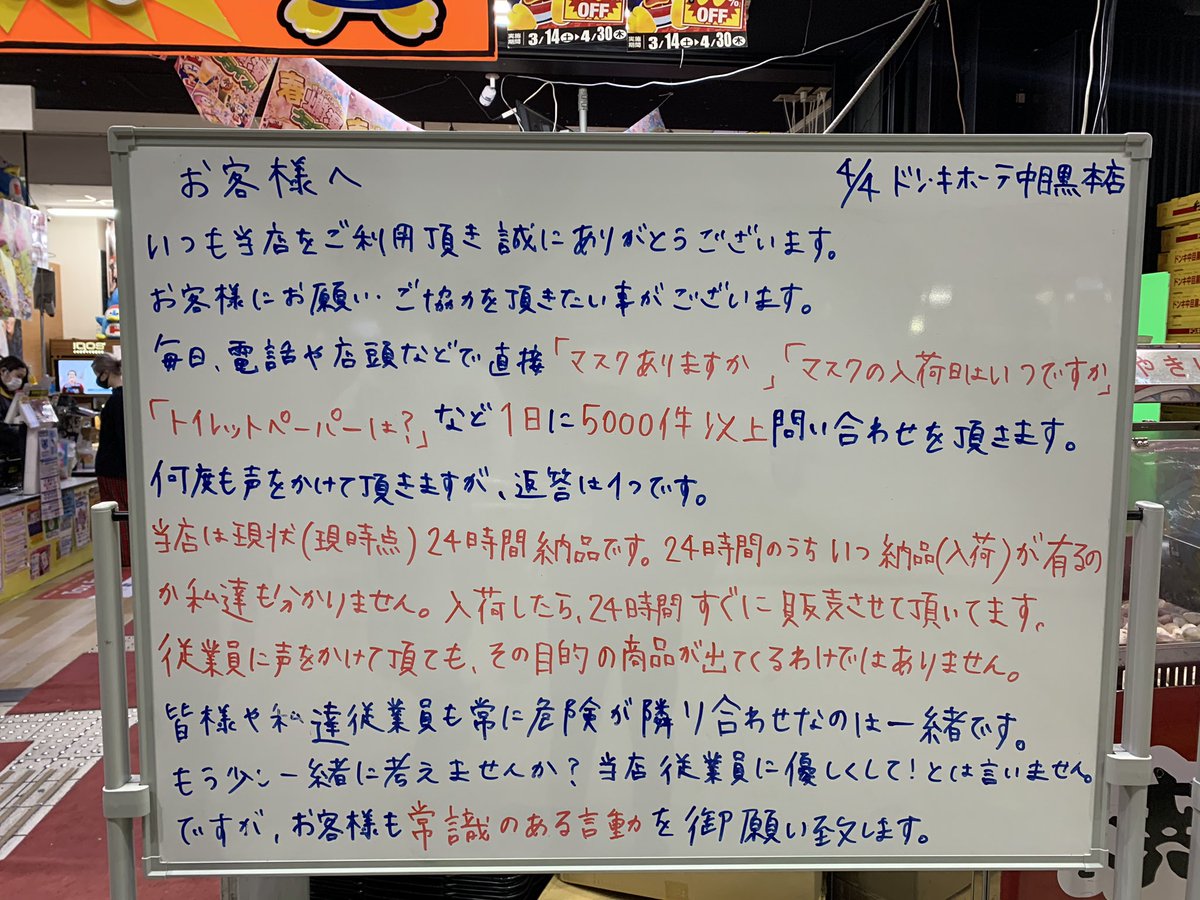 OFF
OFF
実施期間 3/14土▸4/30木
実施期間 3/14土▸4/30木
春
お客様へ
4/4 ドン・キホーテ中目黒本店
いつも当店をご利用頂き誠にありがとうございます。
お客様にお願い・ご協力を頂きたい事がございます。
毎日、電話や店頭などで直接「マスクありますか」「マスクの入荷日はいつですか」
「トイレットペーパーは?」など1日に5000件以上問い合わせを頂きます。
何度も声をかけて頂きますが、返答は1つです。
当店は現状(現時点)24時間納品です。24時間のうちいつ納品(入荷)が有るの
か私達も分かりません。入荷したら、24時間すぐに販売させて頂いてます、
従業員に声をかけて頂ても、その目的の商品が出てくるわけではありません。
皆様や私達従業員も常に危険が隣り合わせなのは一緒です。
もう少し一緒に考えませんか?当店従業員に優しくして!とは言いません。
ですが、お客様も常識のある言動を御願い致します。
IQOS
ドンキ中目黒
やき